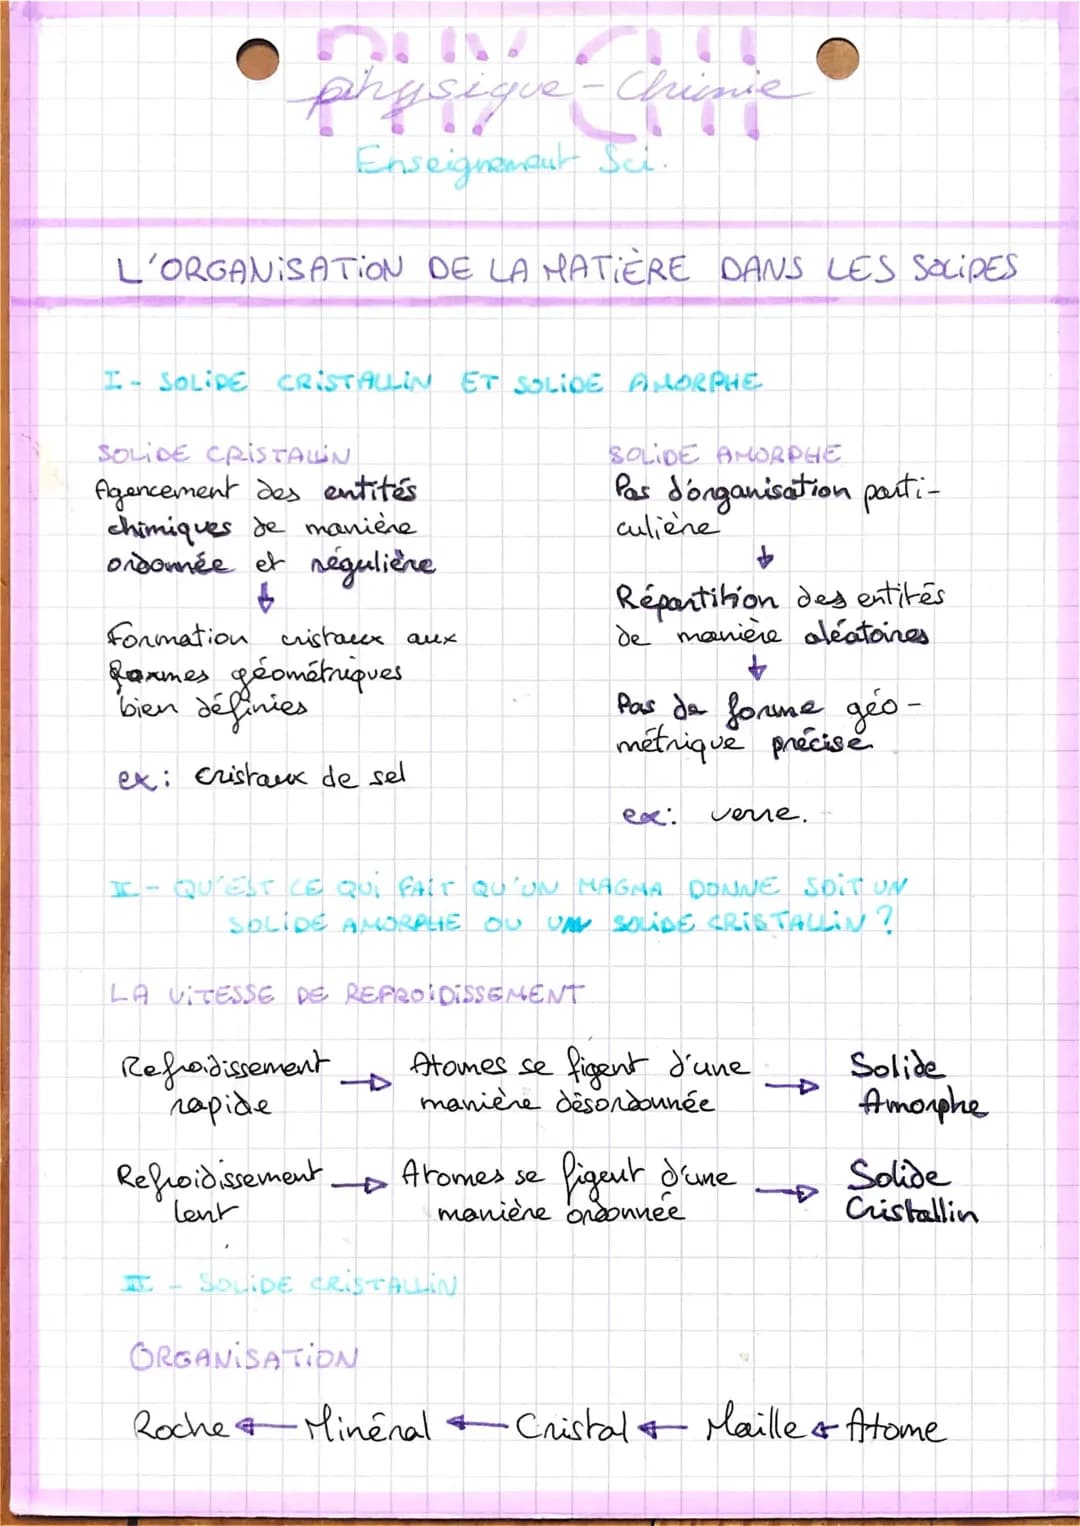 PHY-CHI
physique-Chimie
Enseignement Sci.
L'ORGANISATION DE LA MATIÈRE DANS LES SOLIDES
I - SOLIDE CRISTALLIN ET SOLIDE AMORPHE
SOLIDE CRISTALLIN
Agencement des entités
chimiques de manière
ordonnée et régulière
↓
Formation cristaux aux
formes géométriques
bien définies
ex: cristaux de sel
SOLIDE AMORPHE
Pas d'organisation parti-
culière
↓
Répartition des entités
de manière aléatoires
↓
Pas de forme géo-
métrique précise
ex: verre.
II - QU'EST CE QUI FAIT QU'UN MAGMA DONNE SOIT UN
SOLIDE AMORPHE OU UN SOLIDE CRISTALLIN ?
LA VITESSE DE REFROIDISSEMENT
Refroidissement rapide → Atomes se figent d'une manière désordonnée → Solide Amorphe
Refroidissement lent → Atomes se figent d'une manière ordonnée → Solide Cristallin
III - SOLIDE CRISTALLIN
ORGANISATION
Roche ← Minéral ← Cristal ← Maille ← Atome